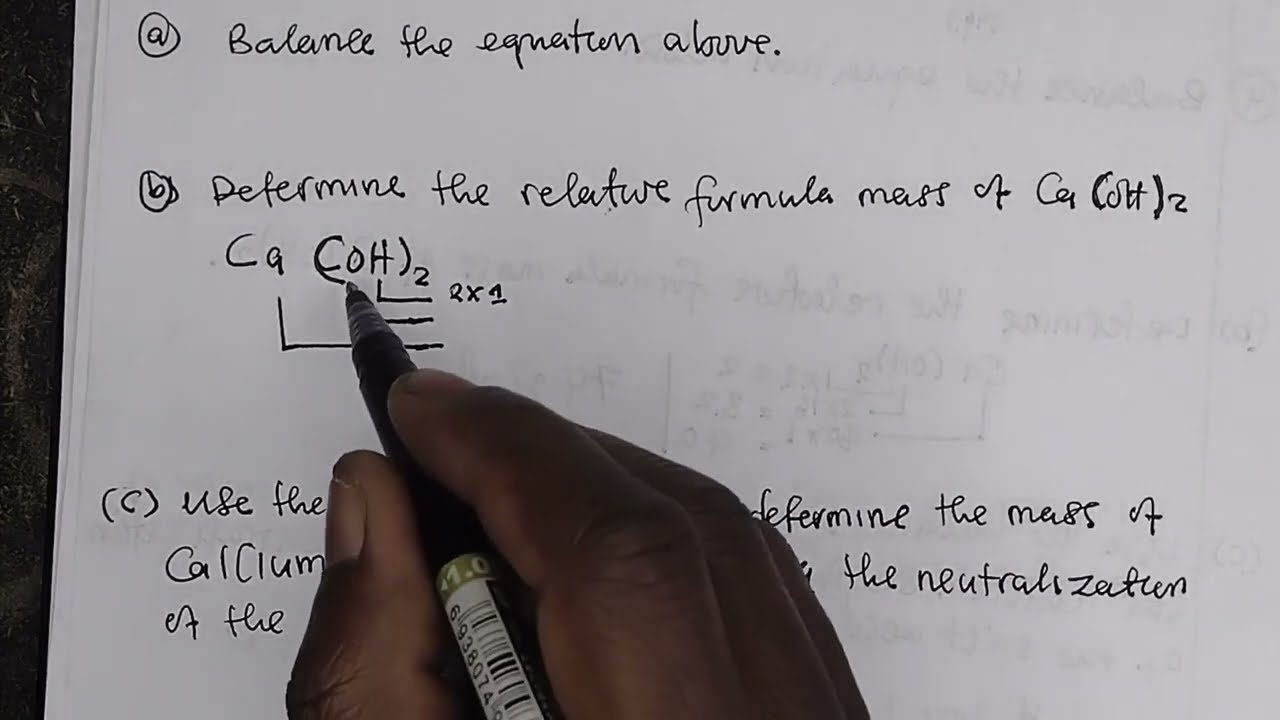 (a) Balance the equation above.
(b) Determine the relative formula mass of Ca(OH)2
Ca (OH)2
2x1
(C) Use the determine the mass of
Calcium the neutralization
of the
1.0
6938074